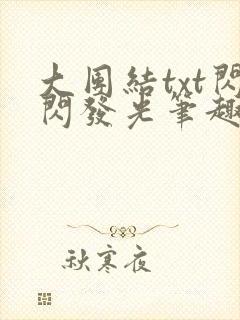 大團結txt閃
閃發光筆趣
秋寒夜